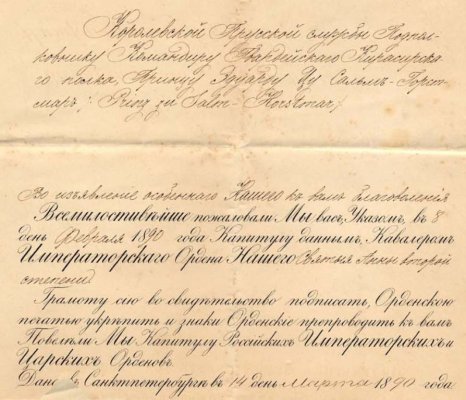 Королевской Прусской службы Подпол-
ковнику Командиру Гвардейскаго Кирасирска-
го полка, Принцу Эдуарду Цу Сальм-Горст-
маръ (Prinz zu Salm-Horstmar)
Во изъявленіе особеннаго Нашего къ вамъ благоволенія
Всемилостивѣйше пожаловали Мы васъ, Указомъ, въ 8
день Февраля 1890 года Капитулу даннымъ, Кавалеромъ
Императорскаго Ордена Нашего Святыя Анны второй
степени
Грамоту сію во свидѣтельство подписать, Орденскою
печатью укрѣпить и знаки Орденскіе препроводить къ вамъ
Повелѣли Мы Капитулу Россійскихъ Императорскихъ и
Царскихъ Орденовъ.
Дана въ Санктпетербургѣ въ 14 день Марта 1890 года.